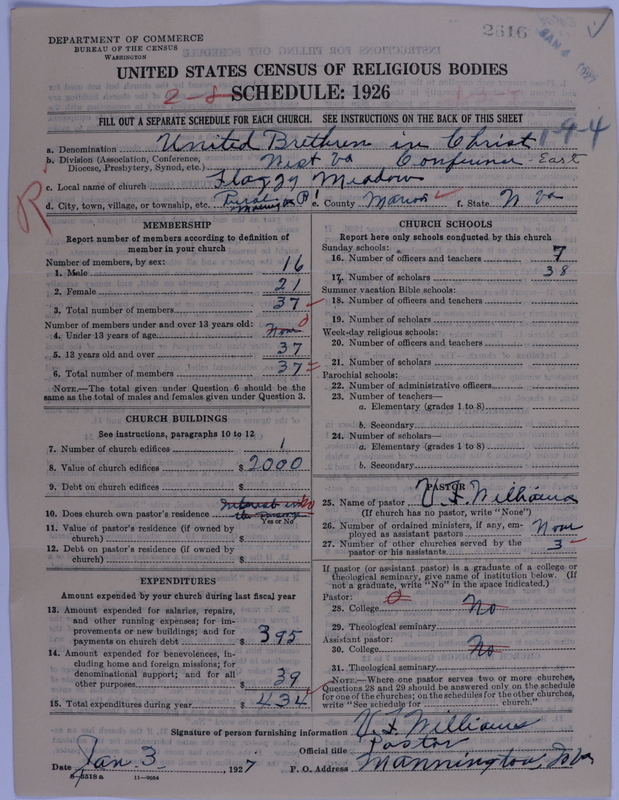 2616
JAN 4 1927
DEPARTMENT OF COMMERCE
BUREAU OF THE CENSUS
WASHINGTON
UNITED STATES CENSUS OF RELIGIOUS BODIES
2-8 SCHEDULE: 1926
FILL OUT A SEPARATE SCHEDULE FOR EACH CHURCH. SEE INSTRUCTIONS ON THE BACK OF THIS SHEET
1-9-4
a. Denomination United Brethren in Christ
b. Division (Association, Conference, Diocese, Presbytery, Synod, etc.) West Va Conference - East
c. Local name of church Flaggy Meadow
R
d. City, town, village, or township, etc. Rural Mannington e. County Marion f. State W Va
MEMBERSHIP
Report number of members according to definition of
member in your church
Number of members, by sex:
1. Male 16
2. Female 21
3. Total number of members 37
Number of members under and over 13 years old:
4. Under 13 years of age None 0
5. 13 years old and over 37
6. Total number of members 37
NOTE.—The total given under Question 6 should be
same as the total of males and females given under Question 3.
CHURCH BUILDINGS
See instructions, paragraphs 10 to 12
7. Number of church edifices 1
8. Value of church edifices $ 2000
9. Debt on church edifices $
10. Does church own pastor's residence
Yes or No
11. Value of pastor's residence (if owned by
church) $
12. Debt on pastor's residence (if owned by
church) $
EXPENDITURES
Amount expended by your church during last fiscal year
13. Amount expended for salaries, repairs,
and other running expenses; for im-
provements or new buildings; and for
payments on church debt $ 395
14. Amount expended for benevolences, in-
cluding home and foreign missions; for
denominational support; and for all
other purposes $ 39
15. Total expenditures during year $ 434
CHURCH SCHOOLS
Report here only schools conducted by this church
Sunday schools:
16. Number of officers and teachers 7
17. Number of scholars 38
Summer vacation Bible schools:
18. Number of officers and teachers
19. Number of scholars
Week-day religious schools:
20. Number of officers and teachers
21. Number of scholars
Parochial schools:
22. Number of administrative officers
23. Number of teachers—
a. Elementary (grades 1 to 8)
b. Secondary
24. Number of scholars—
a. Elementary (grades 1 to 8)
b. Secondary
PASTOR
25. Name of pastor V. F. Williams
(If church has no pastor, write "None")
26. Number of ordained ministers, if any, em-
ployed as assistant pastors None
27. Number of other churches served by the
pastor or his assistants 3
If pastor (or assistant pastor) is a graduate of a college or
theological seminary, give name of institution below. (If
not a graduate, write "No" in the space indicated.)
Pastor:
28. College No
29. Theological seminary
Assistant pastor:
30. College No
31. Theological seminary
NOTE.—Where one pastor serves two or more churches,
Questions 28 and 29 should be answered only on the schedule
for one of the churches; on the schedules for the other churches,
write "See schedule for church."
Signature of person furnishing information V. F. Williams
Official title Pastor
Date Jan. 3, 1927 P. O. Address Mannington, W Va
8-5518 a 11-9084